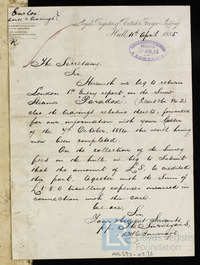 Encloo.
Lloyd's Registry of British & Foreign Shipping
Hull 10th April 1885
The Secretary
Sir
Herewith we beg to return
London 1st Entry report on the Screw
Steamer "Paradox"
also the tracings relative thereto, forwarded
for our information with your letter
of the 4th October, 1884, this vessel having
now been completed.
On the collection of the Survey
fees on the hull, we beg to submit
that the amount of £5. is credited
this port, together with the sum of
£ 8.0 travelling expenses incurred in
connection with this case.
We are,
Sir
Your obedient Servants